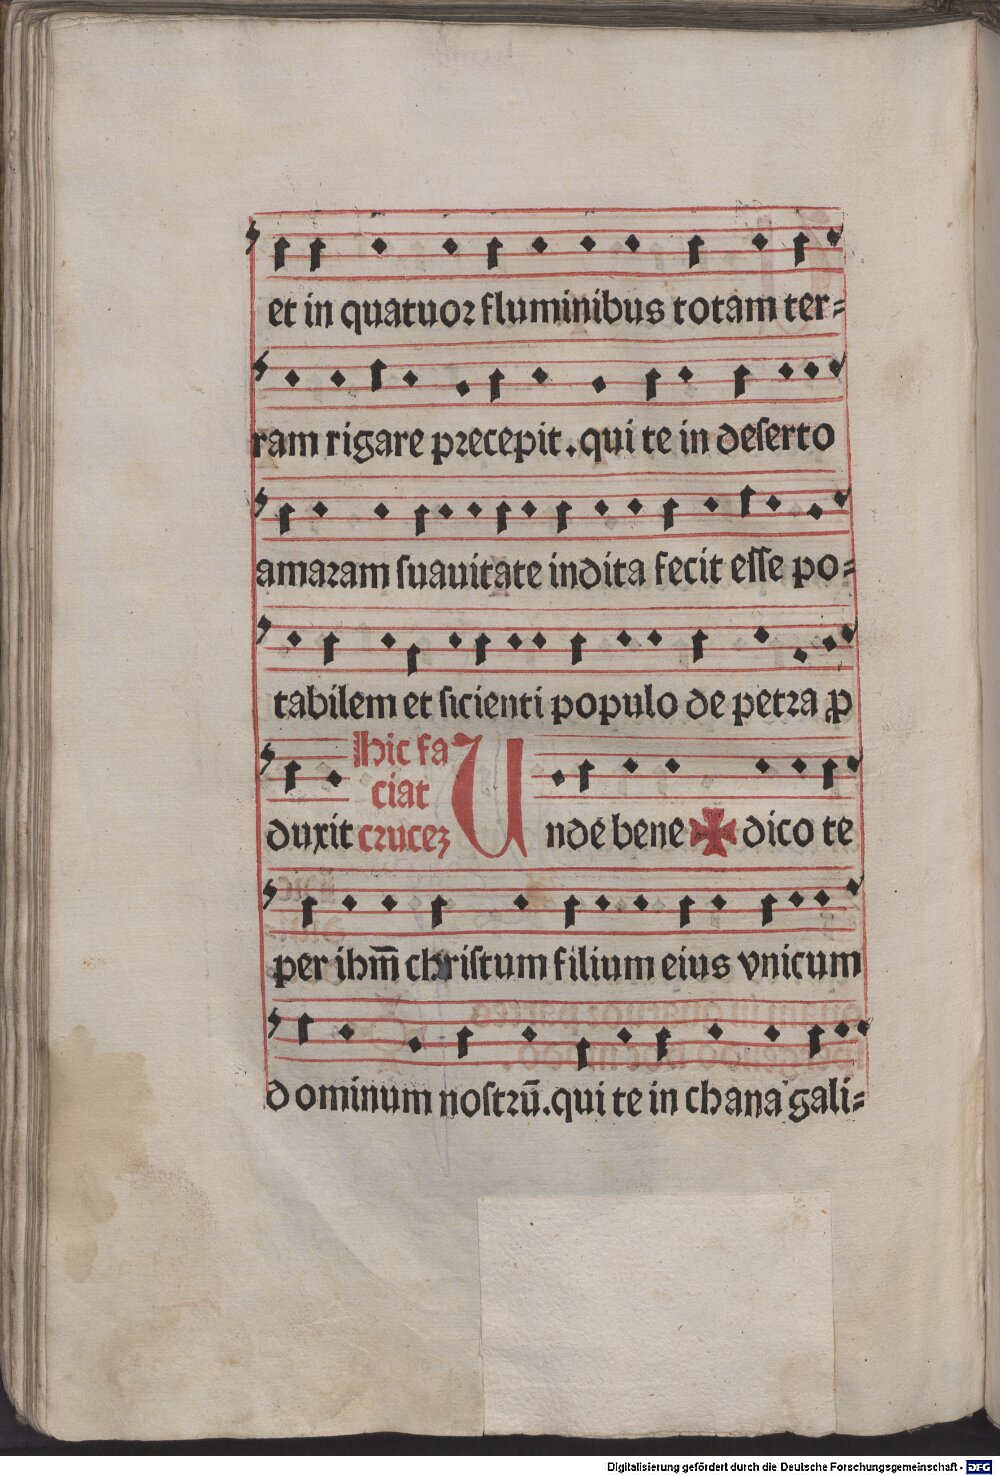 et in quatuoꝛ fluminibus totam ter⸗
ram rigare pꝛecepit. qui te in deſerto
amaꝛam ſuauitate indita fecit eſſe po⸗
tabilem et ſicienti populo de petꝛa ꝓ
duxit
Hic fa
ciat
cꝛuceꝫ
Unde bene ✠ dico te
per ihm̄ chriſtum filium eius vnicum
dominum noſtꝛū. qui te in chana gali⸗
Digitalisierung gefördert durch die Deutsche Forschungsgemeinschaft - DFG